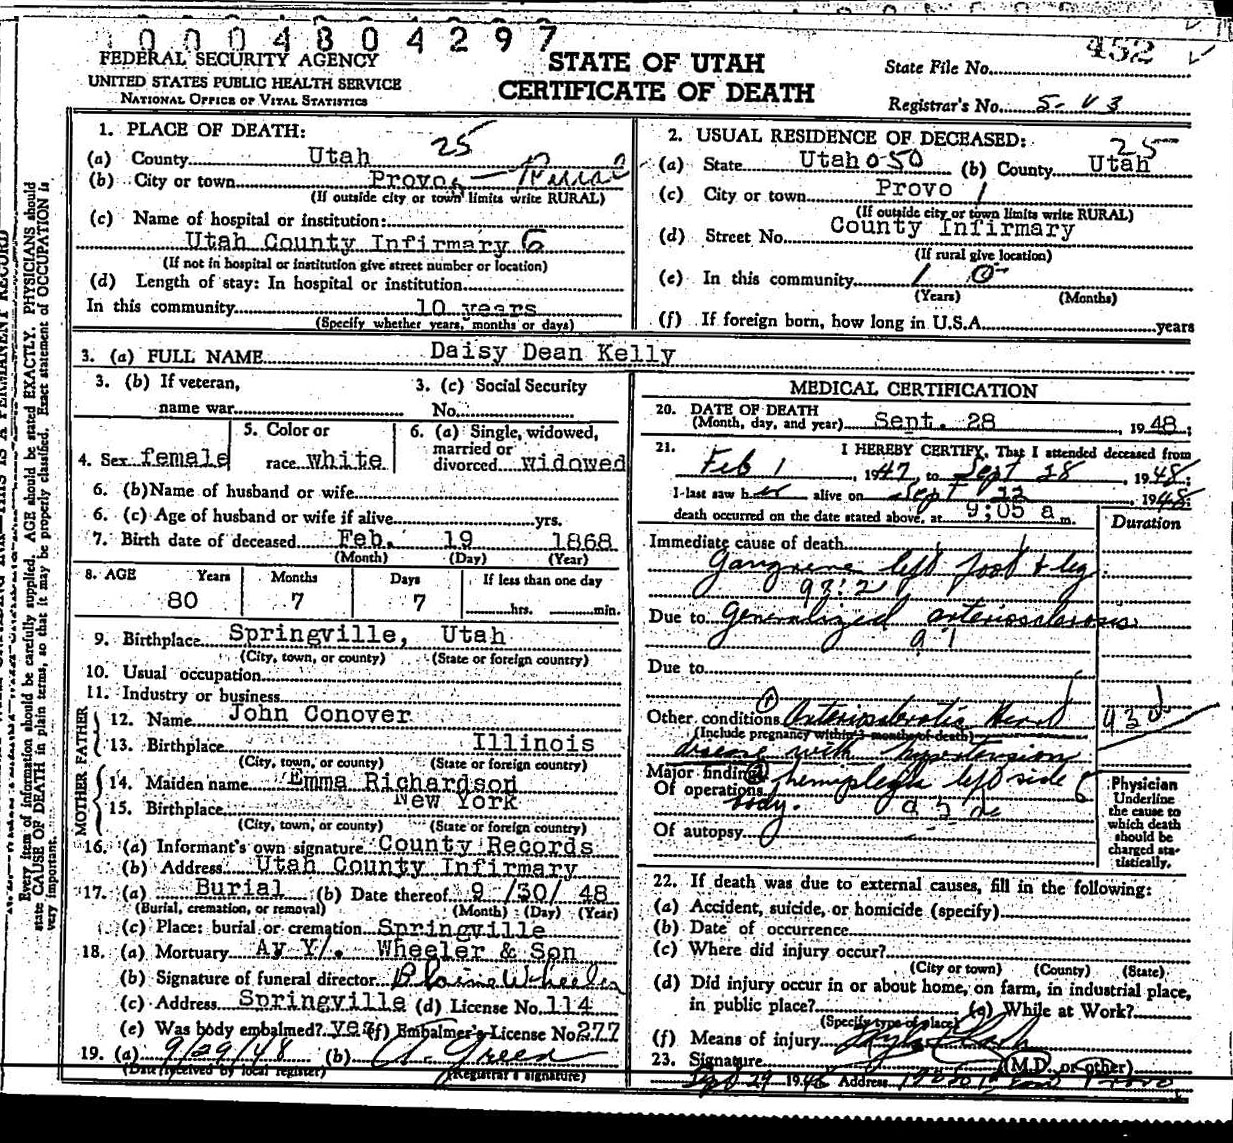 0 0 0 4 8 0 4 2 9 7
452
FEDERAL SECURITY AGENCY
UNITED STATES PUBLIC HEALTH SERVICE
NATIONAL OFFICE OF VITAL STATISTICS
STATE OF UTAH
CERTIFICATE OF DEATH
State File No.
Registrar's No. 5-V3
1. PLACE OF DEATH:
(a) County Utah 25
(b) City or town Provo - Rural
(If outside city or town limits write RURAL)
(c) Name of hospital or institution:
Utah County Infirmary 6
(If not in hospital or institution give street number or location)
(d) Length of stay: In hospital or institution
In this community 10 years
(Specify whether years, months or days)
2. USUAL RESIDENCE OF DECEASED:
25
(a) State Utah 050 (b) County Utah
(c) City or town Provo 1
(If outside city or town limits write RURAL)
(d) Street No. County Infirmary
(If rural give location)
(e) In this community 1 0
(Years) (Months)
(f) If foreign born, how long in U.S.A. years
3. (a) FULL NAME Daisy Dean Kelly
3. (b) If veteran,
name war
3. (c) Social Security
No.
4. Sex female
5. Color or
race white
6. (a) Single, widowed,
married or
divorced widowed
6. (b) Name of husband or wife
6. (c) Age of husband or wife if alive yrs.
7. Birth date of deceased Feb. 19 1868
(Month) (Day) (Year)
8. AGE Years Months Days If less than one day
80 7 7 hrs. min.
9. Birthplace Springville, Utah
(City, town, or county) (State or foreign country)
10. Usual occupation
11. Industry or business
FATHER
12. Name John Conover
13. Birthplace Illinois
(City, town, or county) (State or foreign country)
MOTHER
14. Maiden name Emma Richardson
15. Birthplace New York
(City, town, or county) (State or foreign country)
16. (a) Informant's own signature County Records
(b) Address Utah County Infirmary
17. (a) Burial (b) Date thereof 9 /30/ 48
(Burial, cremation, or removal) (Month) (Day) (Year)
(c) Place: burial or cremation Springville
18. (a) Mortuary Ay Y/. Wheeler & Son
(b) Signature of funeral director Blaine Wheeler
(c) Address Springville (d) License No. 114
(e) Was body embalmed? yes (f) Embalmer's License No. 277
19. (a) 9/29/48 (b) A. Green
(Date received by local register) (Registrar's signature)
MEDICAL CERTIFICATION
20. DATE OF DEATH
(Month, day, and year) Sept. 28, 1948;
21. I HEREBY CERTIFY, That I attended deceased from
Feb 1, 1947, to Sept 28, 1948;
I last saw her alive on Sept 22, 1948;
death occurred on the date stated above, at 9:05 a m.
Duration
Immediate cause of death
Gangrene left foot & leg
97:21
Due to Generalized arteriosclerosis
97
Due to
Other conditions (1) Arteriosclerotic Heart 93d
(Include pregnancy within 3 months of death)
disease with hypertension
Major findings (2) hemiplegia left side
Of operations body.
Of autopsy
Physician
Underline
the cause to
which death
should be
charged sta-
tistically.
22. If death was due to external causes, fill in the following:
(a) Accident, suicide, or homicide (specify)
(b) Date of occurrence
(c) Where did injury occur?
(City or town) (County) (State)
(d) Did injury occur in or about home, on farm, in industrial place,
in public place? (e) While at Work?
(Specify type of place)
(f) Means of injury
23. Signature (M.D. or other)
Sept 29 1948 Address Provo
Every item of information should be carefully supplied. AGE should be stated EXACTLY. PHYSICIANS should
state CAUSE OF DEATH in plain terms, so that it may be properly classified. Exact statement of OCCUPATION is
very important.